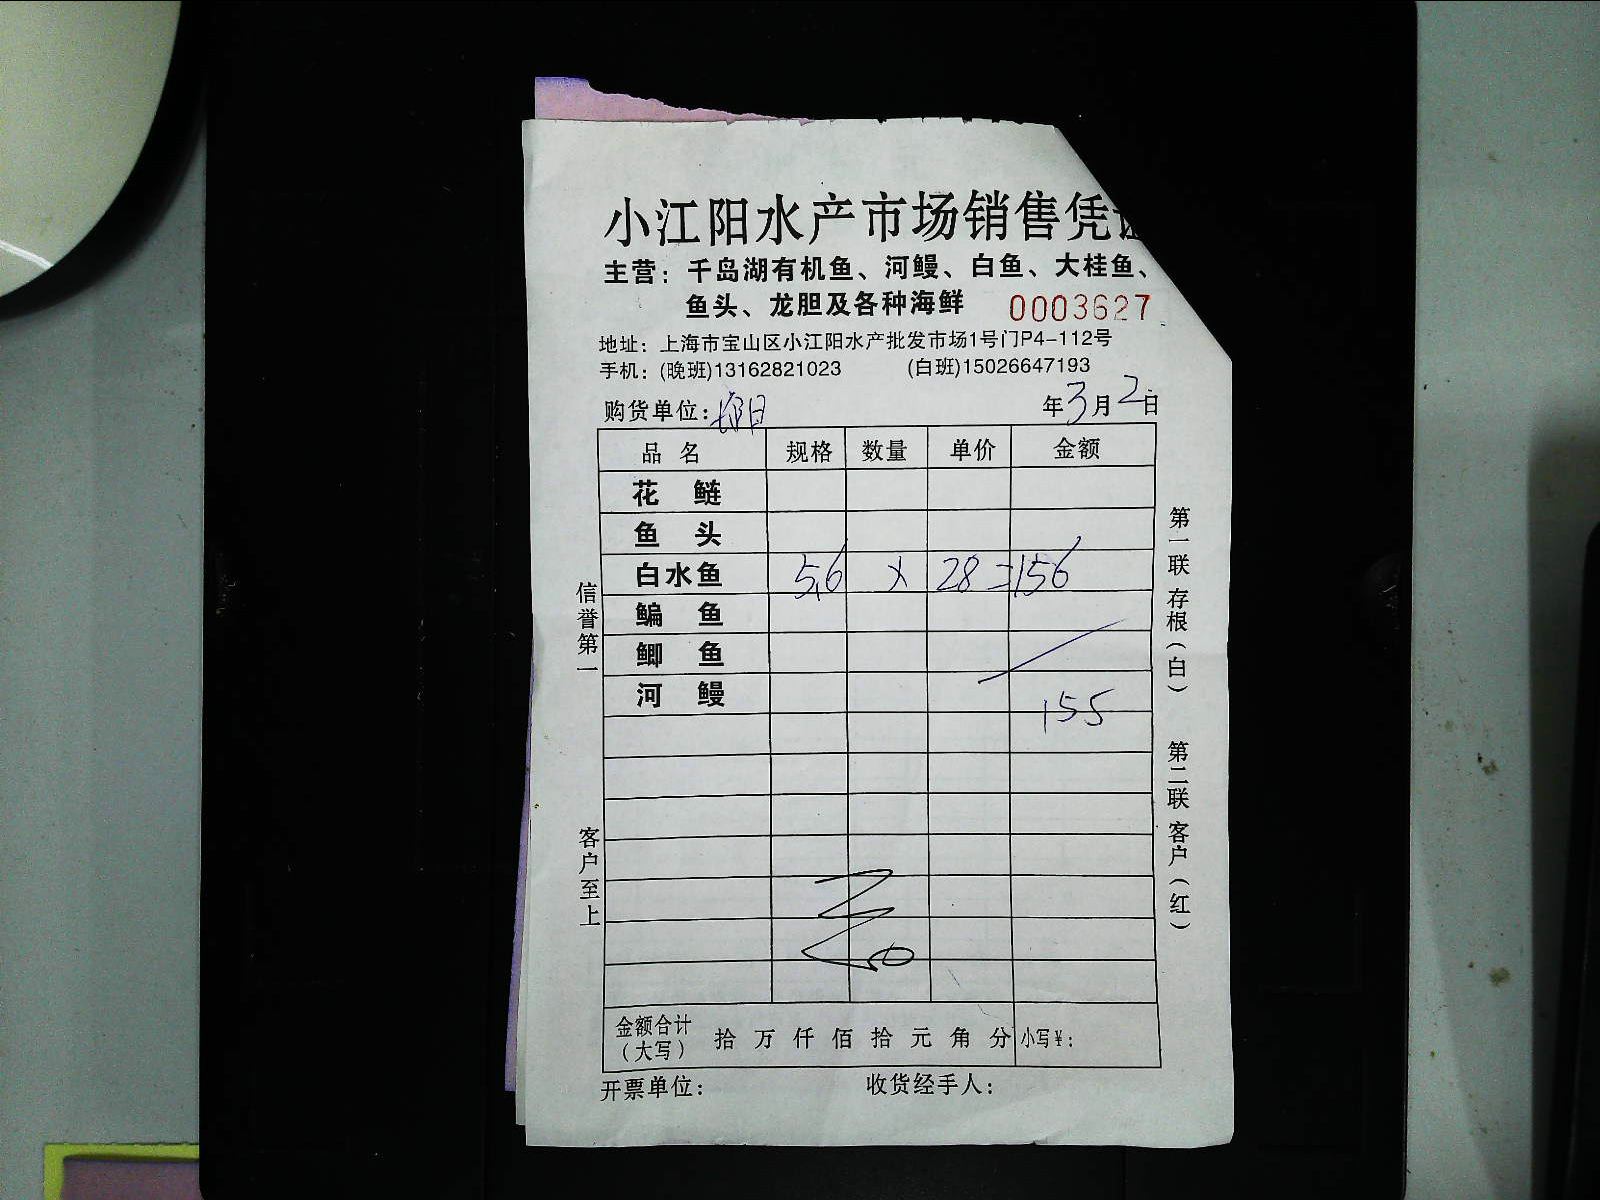 小江阳水产市场销售凭
主营：千岛湖有机鱼、河鳗、白鱼、大桂鱼、
鱼头、龙胆及各种海鲜 0003627
地址：上海市宝山区小江阳水产批发市场1号门P4-112号
手机：(晚班)13162821023 (白班)15026647193
购货单位： 年3月2日
品名 规格 数量 单价 金额
花鲢
鱼头
白水鱼 5.6 × 28=156
鳊鱼
鲫鱼
河鳗
155
金额合计（大写） 拾万仟佰拾元角分 小写￥：
开票单位： 收货经手人：
信誉第一
客户至上
第一联 存根（白）
第二联 客户（红）